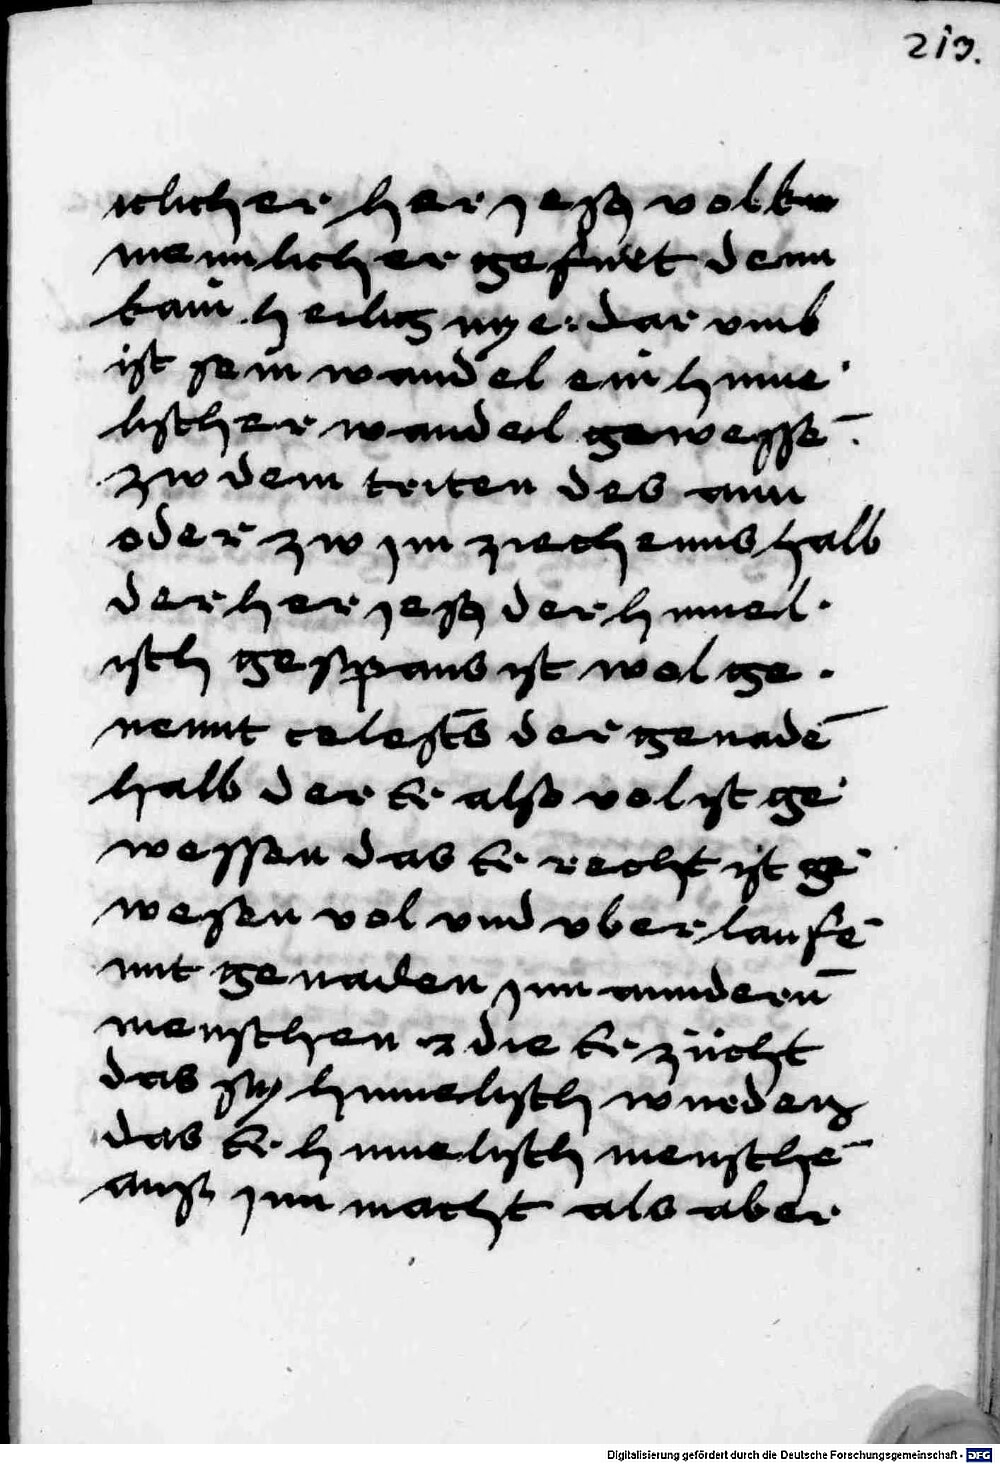 213.
iclicher her jesus volku
menlicher gefurt denn
kain heilig nye: dar umb
ist sein wandel ein hime
lischer wandel gewesse̅.
zw dem triten des ann
oder zw im ziechenns halb
der her jesus der himel
isch gespans ist wol ge
nennt celestis der genade̅
halb der Er also vol ist ge
wessen das Er recht ist ge
wesen vol und uber laufe̅
mit genaden jnn anndern̅
menschen die Er zücht
das sy himelisch wurden
das Er himelisch mensche̅
auss jnn macht als aber
Digitalisierung gefördert durch die Deutsche Forschungsgemeinschaft - DFG